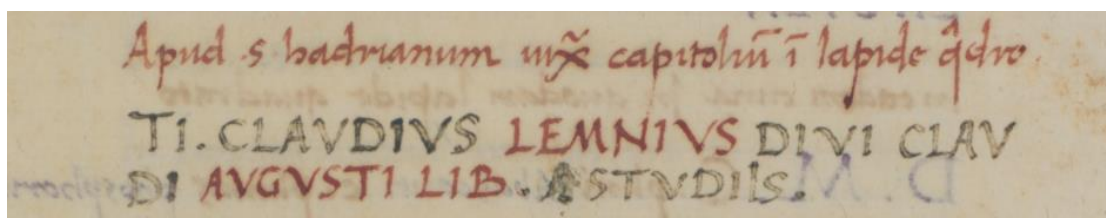 Apud .s hadrianum iux̃ capitoliū ī lapide q̃dro.
TI. CLAVDIVS LEMNIVS DIVI CLAV
DI AVGVSTI LIB. A STVDIIS.